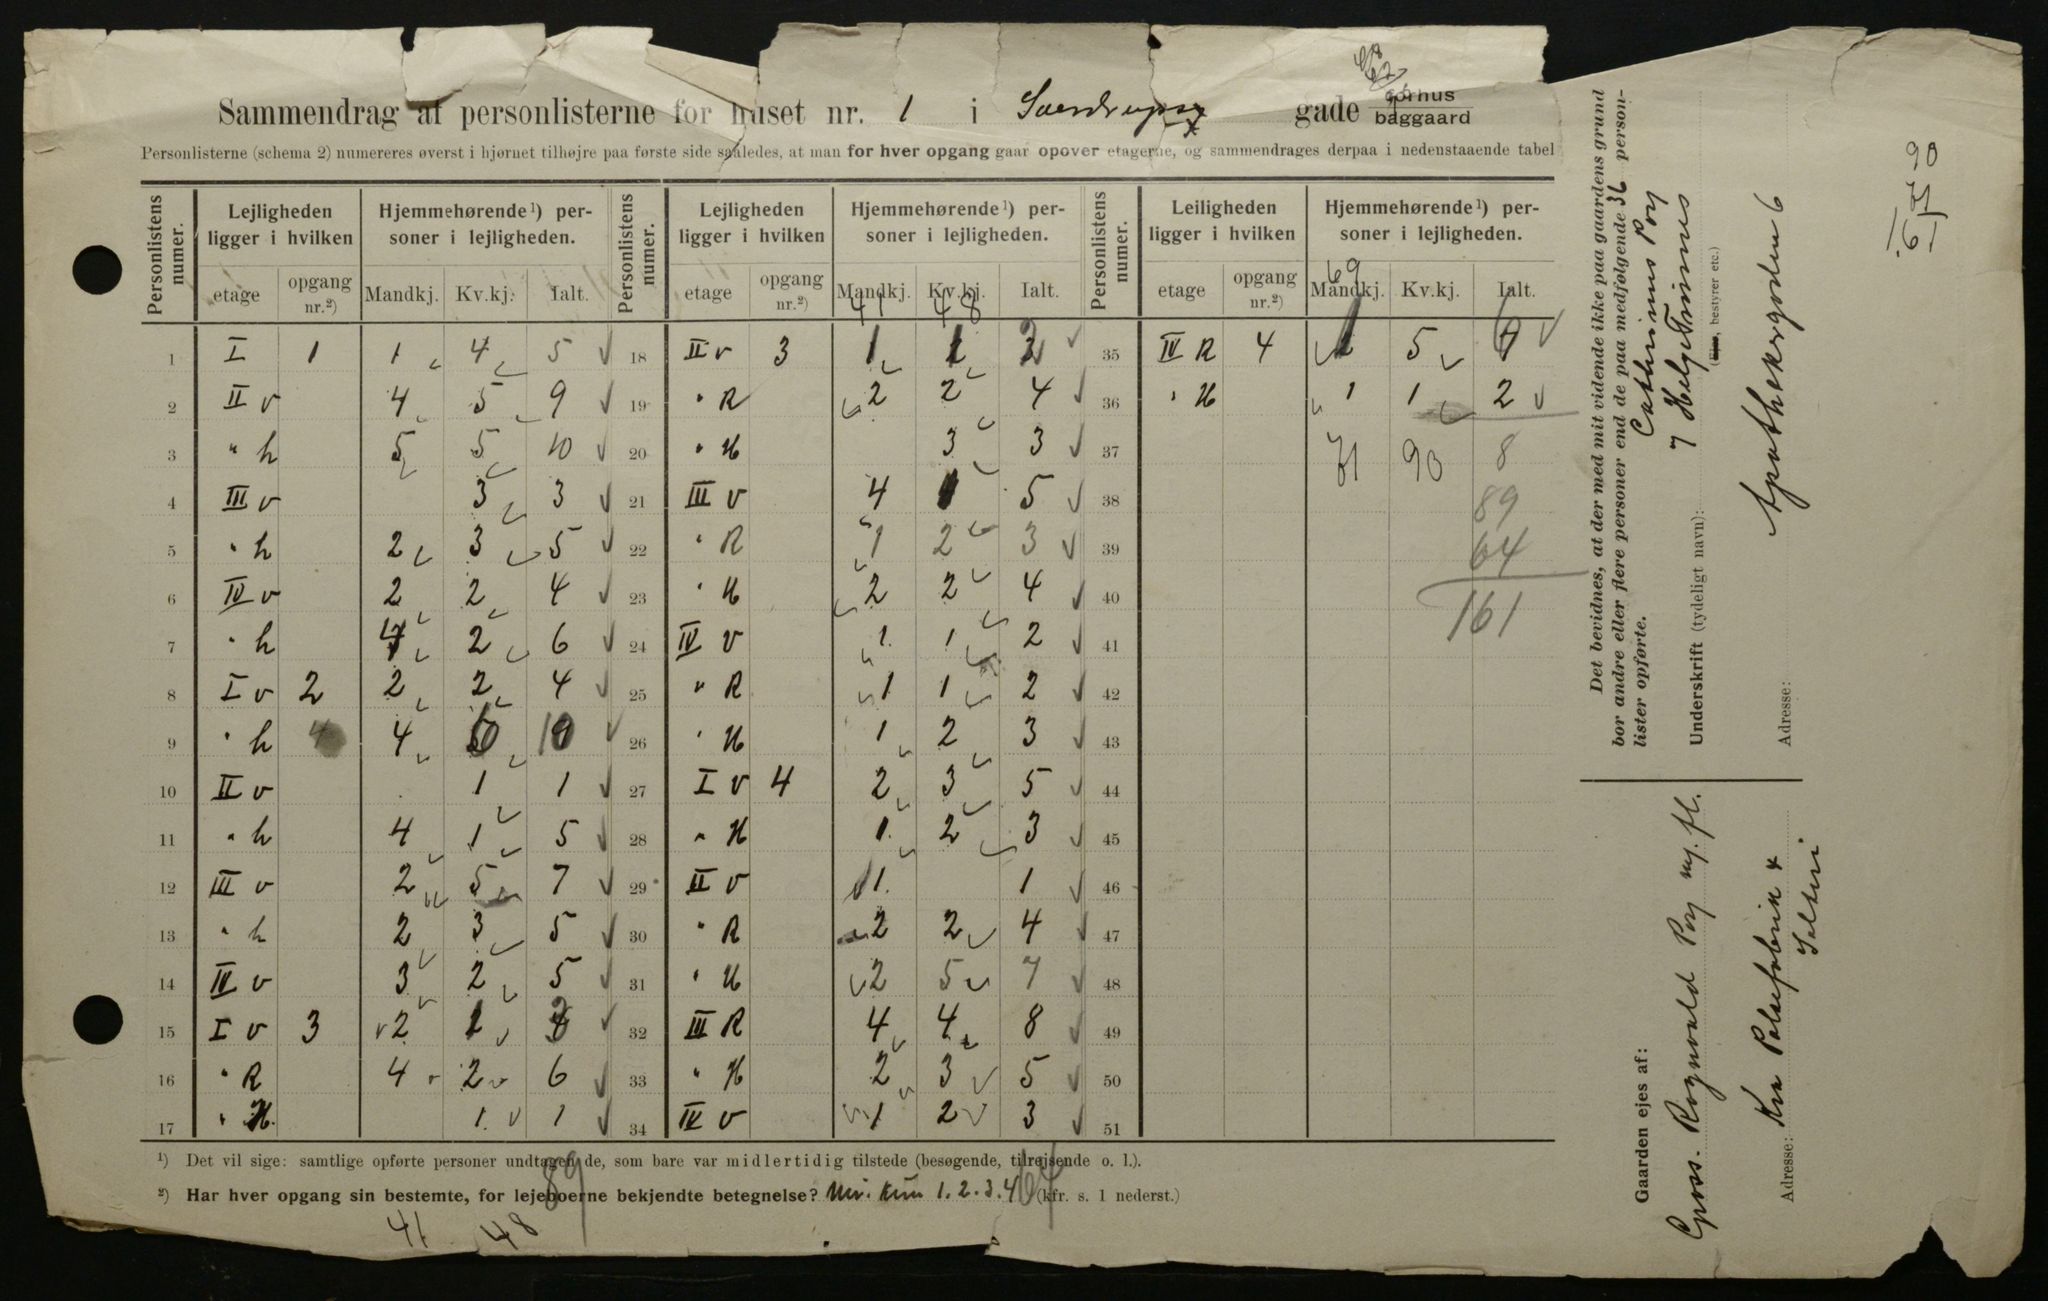 Sammendrag af personlisterne for huset nr. 1 i gade baggaard
Personlisterne (schema 2) numereres øverst i hjørnet tilhøjre paa første side saaledes, at man for hver opgang gaar opover etagerne, og sammendrages derpaa i nedenstaaende tabel
Personlistens numer. Lejligheden ligger i hvilken Hjemmehørende ¹) personer i lejligheden. Personlistens numer. Lejligheden ligger i hvilken Hjemmehørende ¹) personer i lejligheden. Personlistens numer. Leiligheden ligger i hvilken Hjemmehørende ¹) personer i lejligheden.
etage opgang nr.²) Mandkj. Kv.kj. Ialt. etage opgang nr.²) Mandkj. Kv.kj. Ialt. etage opgang nr.²) Mandkj. Kv.kj. Ialt.
41 48 69
1 I 1 1 4 5 18 II v 3 1 1 2 35 IV R 4 1 5 6
2 II v 4 5 9 19 " R 2 2 4 36 " H 1 1 2
3 " h 5 5 10 20 " H 3 3 37 71 90 8
4 III v 3 3 21 III v 4 1 5 38 89
5 " h 2 3 5 22 " R 1 2 3 39 64
6 IV v 2 2 4 23 " H 2 2 4 40 161
7 " h 4 2 6 24 IV v 1 1 2 41
8 I v 2 2 2 4 25 " R 1 1 2 42
9 " h 4 4 6 10 26 " H 1 2 3 43
10 II v 1 1 27 I v 4 2 3 5 44
11 " h 4 1 5 28 " H 1 2 3 45
12 III v 2 5 7 29 II v 1 1 46
13 " h 2 3 5 30 " R 2 2 4 47
14 IV v 3 2 5 31 " H 2 5 7 48
15 I v 3 2 1 3 32 III R 4 4 8 49
16 " R 4 2 6 33 " H 2 3 5 50
17 " H. 1 1 34 IV v 1 2 3 51
¹) Det vil sige: samtlige opførte personer undtagen de, som bare var midlertidig tilstede (besøgende, tilrejsende o. l.).
²) Har hver opgang sin bestemte, for lejeboerne bekjendte betegnelse? kun 1. 2. 3. 4 (kfr. s. 1 nederst.)
89 64
41 48
Det bevidnes, at der med mit vidende ikke paa gaardens grund
bor andre eller flere personer end de paa medfølgende 36 person-
lister opførte.
Underskrift (tydeligt navn):
(Ejer, bestyrer etc.)
Adresse: Apothekergaden 6
Gaarden ejes af:
Adresse:
90
71
161